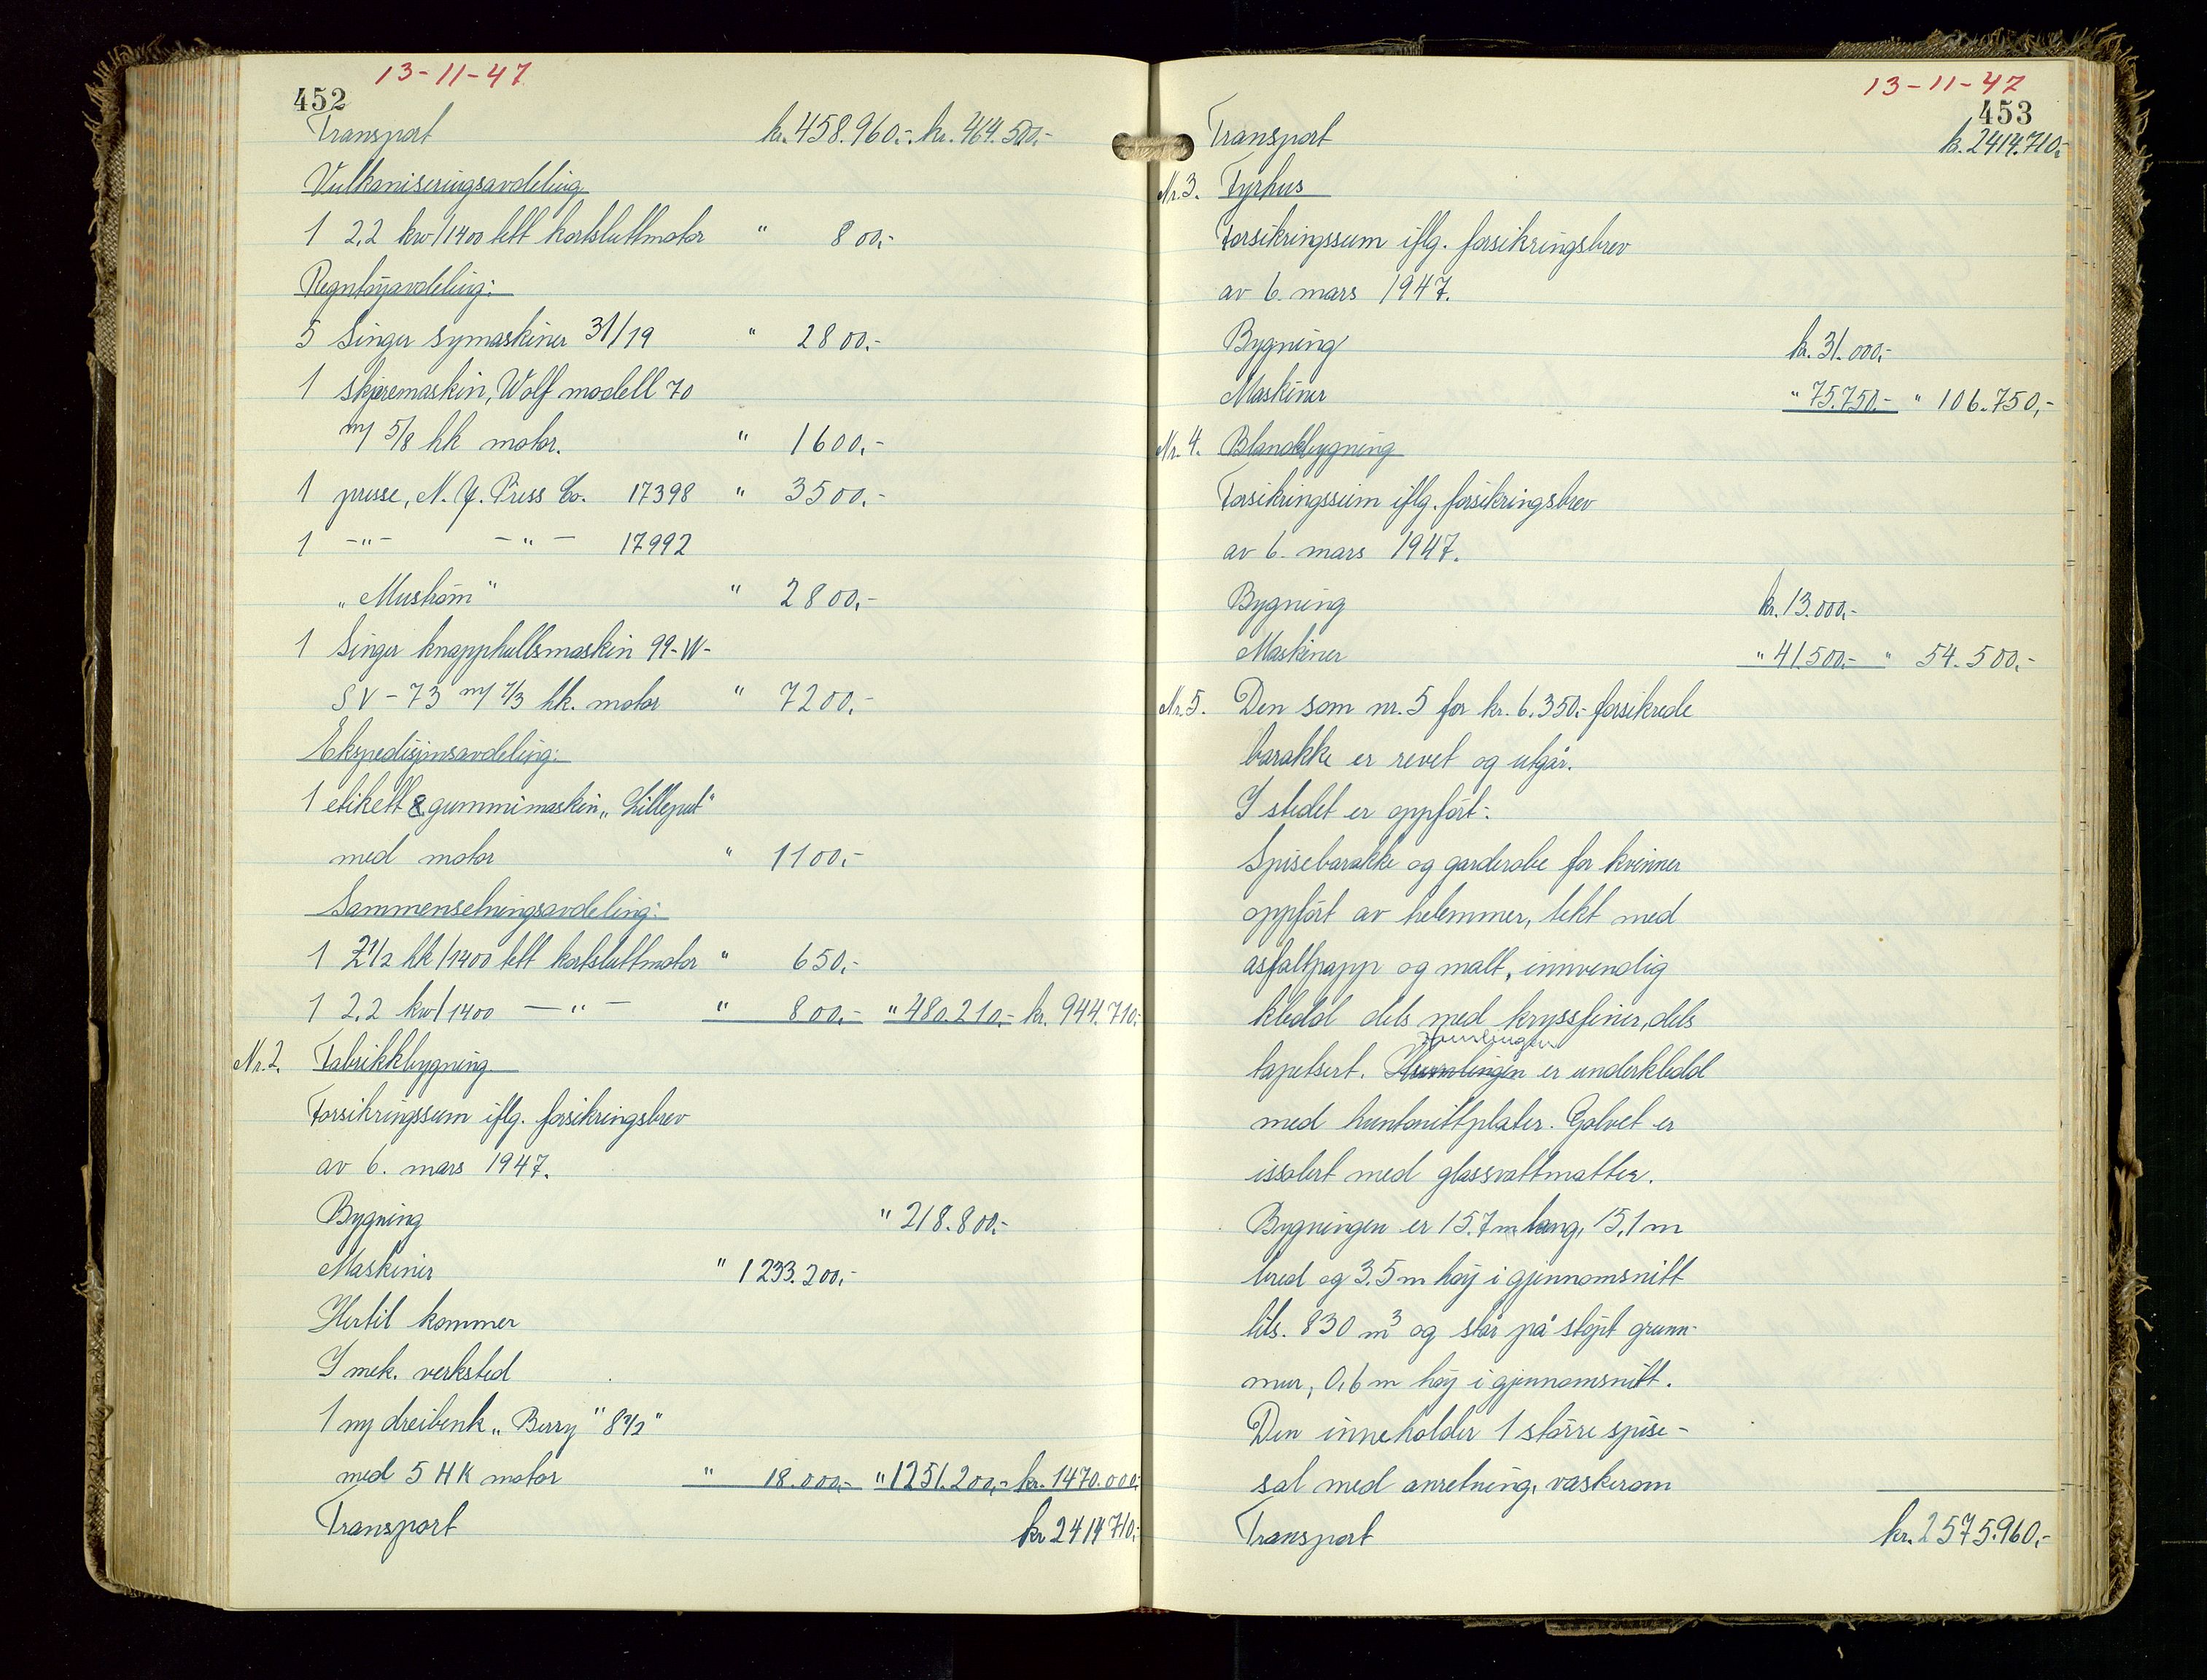 13-11-47
452
Transport kr. 458.960.- kr. 464.500,-
Vulkaniseringsavdeling
1 2,2 kw/1400 tett kortsluttmotor " 800,-
Regntöyavdeling:
5 Singer symaskiner 31/19 " 2800,-
1 skjæremaskin, Wolf modell 70
m/ 5/8 hk motor. " 1600,-
1 presse, N.Y. Press Co. 17398 " 3500,-
1 -"- -"- 17992
" 2800,-
1 Singer knapphullsmaskin 99-W-
SV-73 m/ 1/3 hk. motor " 7200,-
Ekspedisjonsavdeling:
1 etikett & gummimaskin „Lilleput"
med motor " 1100,-
Sammensetningsavdeling:
1 2 1/2 hk/1400 tett kortsluttmotor " 650,-
1 2,2 kw/1400 -"- " 800,- " 480.210,- kr. 944.710,-
Nr. 2. Fabrikkbygning
Forsikringssum iflg. forsikringsbrev
av 6. mars 1947.
Bygning " 218.800,-
Maskiner " 1233.200,-
Hertil kommer
I mek. verksted
1 ny dreibenk „Berry" 8 1/2"
med 5 HK motor " 18.000,- " 1251.200,- kr. 1470.000,-
Transport kr 2414710,-
13-11-47
453
Transport kr. 2414.710,-
Nr. 3. Fyrhus
Forsikringssum iflg. forsikringsbrev
av 6. mars 1947.
Bygning kr. 31.000,-
Maskiner " 75.750.- " 106.750,-
Nr. 4. Blandebygning
Forsikringssum iflg. forsikringsbrev
av 6. mars 1947.
Bygning kr. 13.000,-
Maskiner " 41.500.- " 54.500,-
Nr. 5. Den som nr. 5 for kr. 6.350.- forsikrede
barakke er revet og utgår.
I stedet er oppfört:
Spisebarakke og garderobe for kvinner
oppfört av helemmer, tekt med
asfaltpapp og malt, innvendig
kledd dels med kryssfiner, dels
tapetsert. Himlingen er underkledd
med huntonittplater. Golvet er
issolert med glassvattmatter.
Bygningen er 15.7 m lang, 15,1 m
bred og 3.5 m höy i gjennomsnitt
tils. 830 m3 og står på stöpt grunn-
mur, 0,6 m höy i gjennomsnitt.
Den inneholder 1 större spise-
sal med anretning, vaskerom
Transport kr. 2575.960,-